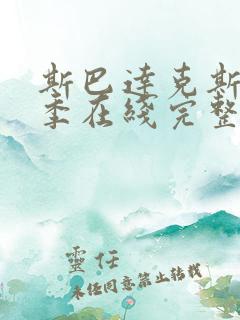 斯巴達克斯
季在綫完整
靈任
未经同意禁止转载